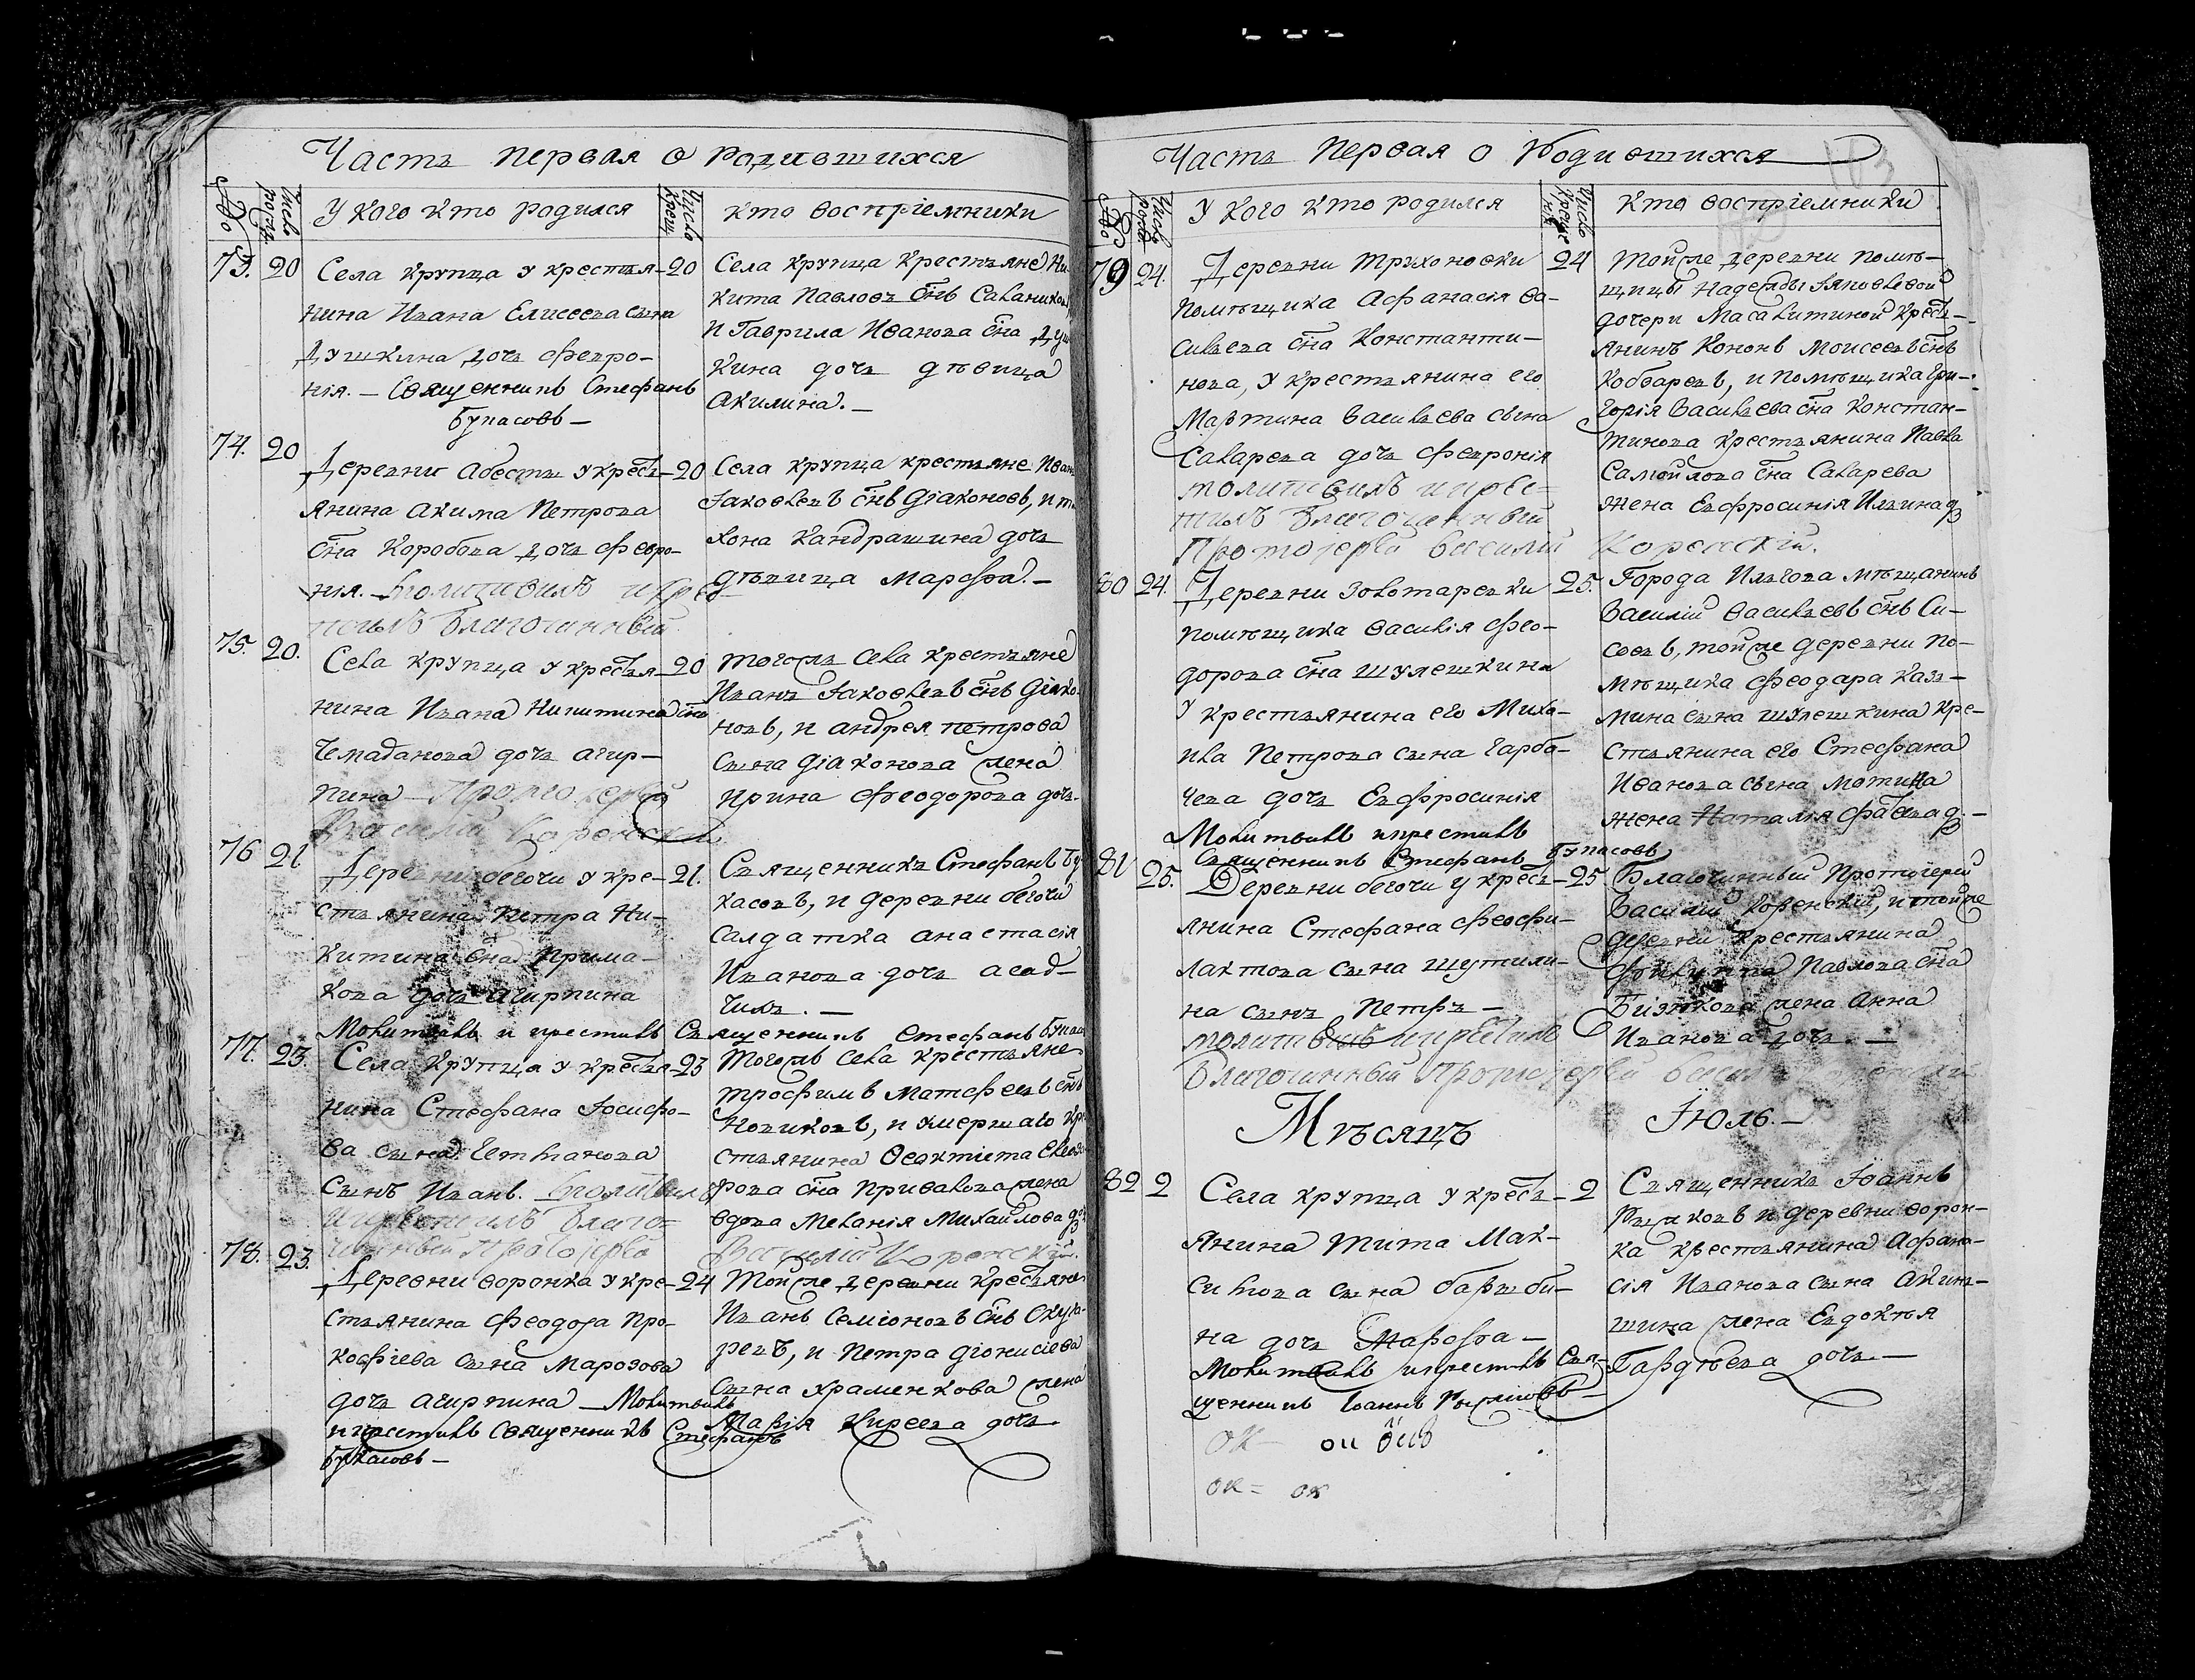 Часть первая о родившихся
У кого кто родился
кто воспріемники
73. 20
Села Крупца у крестья-
нина Ивана Елисеева сына
Душкина дочь Февро-
нія. — Священникъ Стефанъ
Букасовъ —
20
Села Крупца крестьяне Ни-
кита Павловъ снъ
и Гаврила Иванова сна Душ
кина дочь дѣвица
Акилина. —
74. 20
Деревни у кресть-
янина Акима Петрова
сна Коробова дочь Февро-
нія. — Молитвилъ и кре
стилъ Благочинный
20
Села Крупца крестьяне Иван
Іаковлевъ снъ Діаконовъ, и
хона Кандрашина дочь
дѣвица Марѳа. —
75. 20.
Села Крупца у крестья-
нина Ивана Никитина сна
Чемаданова дочь Агир-
пина — Протоіерей
Василій Коренскій
20
тогожъ села крестьяне
Иванъ Іаковлевъ снъ Діяко-
новъ, и Андрея Петрова
сына Діаконова жена
Ирина Феодорова дочь.
76 21
Деревни Бегочи у кре-
стьянина Петра Ни-
китина сна Прима-
кова дочь Агирпина
Молитвилъ и крестилъ Священникъ Стефанъ Букас
21.
Священникъ Стефанъ Бу-
касовъ, и деревни Бегочи
салдатка Анастасія
Иванова дочь
77. 23.
Села Крупца у крестья-
нина Стефана Іосифо-
ва сына
сынъ Иванъ. Молитвилъ
и крестилъ Благо-
чинный Протоіерей Василій Коренскій.
23
тогожъ села крестьяне
Трофимъ Матфеевъ снъ
Новиковъ, и умершаго кре
стьянина Ѳеоктиста
рова сна Привалова жена
вдова Меланія Михайлова
78. 23.
Деревни Воронка у кре-
стьянина Феодора Про-
кофіева сына Марозова
дочь Агирпина — Молитвилъ
и крестилъ Священникъ Стефанъ
Букасовъ —
24
тойже деревни крестьяне
Иванъ Семіоновъ снъ
ревъ, и Петра Діонисіева
сына Храменкова жена
Марія Киреева дочь.
Часть первая о родившихся
163
У кого кто родился
Кто воспріемники
79 24.
Деревни Трухоновки
помѣщика Афанасія Ва-
сильева сна Константи-
нова, у крестьянина его
Мартина Васильева сына
Саларева дочь Февронія
молитвилъ и кре-
стилъ Благочинный
Протоіерей Василій Коренскій.
24
тойже деревни помѣ-
щицы Надежды Іаковлевой
дочери кресть-
янинъ Кононъ Моисеевъ снъ
и помѣщика Гри-
горія Васильева сна Констан-
тинова крестьянина Павла
Самойлова сна Саларева
жена Евфросинія Ильина д
80 24.
Деревни Золотаревки
помѣщика Василія Фео-
дорова сна Шулешкина
у крестьянина его Миха-
ила Петрова сына Гарба-
чева дочь Евфросинія
Молитвилъ и крестилъ
Священникъ Стефанъ Букасовъ
25.
Города Льгова мѣщанинъ
Василій Васильевъ снъ Сы-
соевъ, тойже деревни по-
мѣщика Феодара Казь-
мина сына Шулешкина кре-
стьянина его Стефана
Иванова сына
жена Наталія
81 25.
Деревни Бегочи у кресть-
янина Стефана Феофи-
лактова сына Шутили-
на сынъ Петръ —
молитвилъ и крестилъ
Благочинный Протоіерей Василій Коренскій
25
Благочинный Протоіерей
Василій Коренскій, и тойже
деревни крестьянина
Филиппа Павлова сна
Бизюкова жена Анна
Иванова дочь. —
Мѣсяцъ
Іюль. —
82 2
Села Крупца у кресть-
янина Тита Мак-
симова сына
на дочь Марѳа —
Молитвилъ и крестилъ Свя-
щенникъ Іоаннъ
2
Священникъ Іоаннъ
и деревни Ворон-
ка крестьянина Афана-
сія Иванова сына Акинь-
шина жена Евдокія
Гардѣева дочь. —